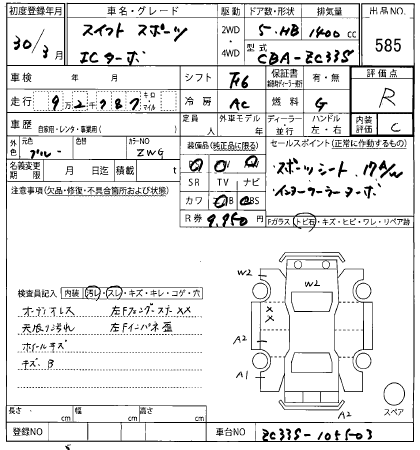 初度登録年月
30/3月
車名・グレード
スイフト スポーツ
ICターボ
駆動
2WD
・
4WD
ドア数・形状
5・HB
排気量
1400 cc
型式
CBA-ZC33S
出品NO.
585
車検 年 月
走行 9万2千787 キロ マイル
シフト F6
冷房 AC
保証書 有・無
燃料 G
評価点
R
車歴 自家用・レンタ・事業用( )
定員 人
外車モデル 年
ディーラー・並行
ハンドル 左・右
内装評価 C
外色 元色 ブルー
色替
カラーNO ZWG
名義変更期限 月 日迄
積載 t
装備品(純正品に限る)
SR TV ナビ
カワ ABS
R券 9,950円
セールスポイント(正常に作動するもの)
スポーツシート 17A/W
インタークーラーターボ
注意事項(欠品・修復・不具合箇所および状態)
Fガラス トビ石・キズ・ヒビ・ワレ・リペア跡
W2
W2
XX
A2
A1
A2
スペア
検査員記入 内装 汚レ・スレ・キズ・キレ・コゲ・穴
オーディオレス
左Fフェンダーステー XX
天張り汚れ
左Fインパネ歪
ホイールキズ
キズ、B
長さ cm
幅 cm
高さ cm
登録NO
車台NO
ZC33S-105503